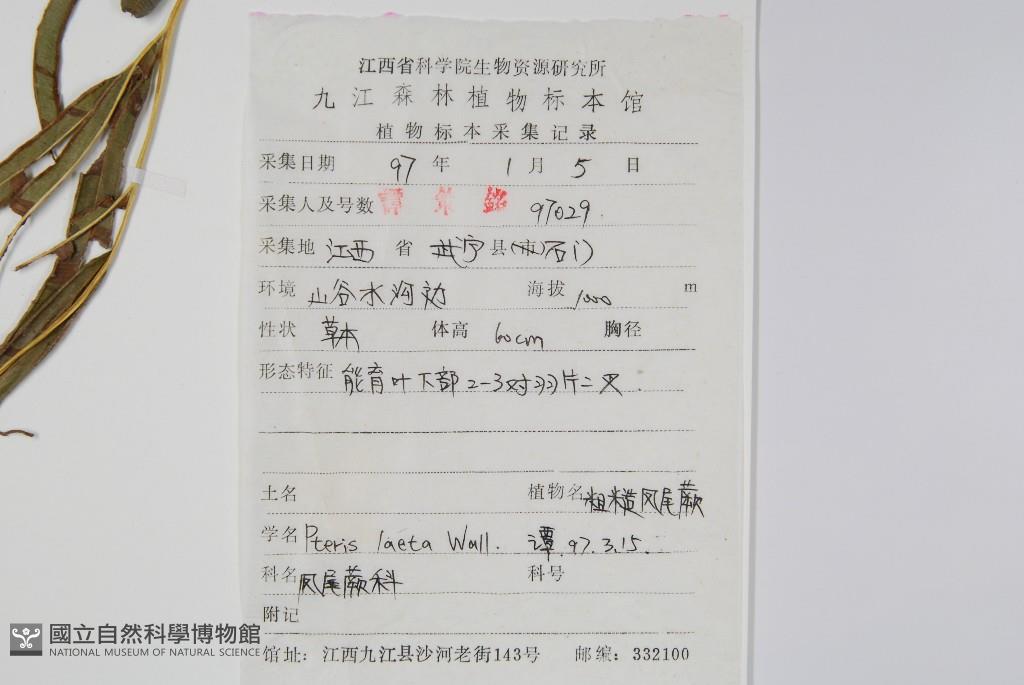 江西省科学院生物资源研究所
九江森林植物标本馆
植物标本采集记录
采集日期 97 年 1 月 5 日
采集人及号数 譚 97029.
采集地 江西 省 武宁 县(市)石门
环境 山谷水沟边 海拔 1000 m
性状 草本 体高 60cm 胸径
形态特征 能育叶下部2-3对羽片二叉.
土名 植物名 粗糙凤尾蕨
学名 Pteris laeta Wall. 谭.97.3.15.
科名 凤尾蕨科 科号
附记
國立自然科學博物館
NATIONAL MUSEUM OF NATURAL SCIENCE
馆址：江西九江县沙河老街143号 邮编：332100